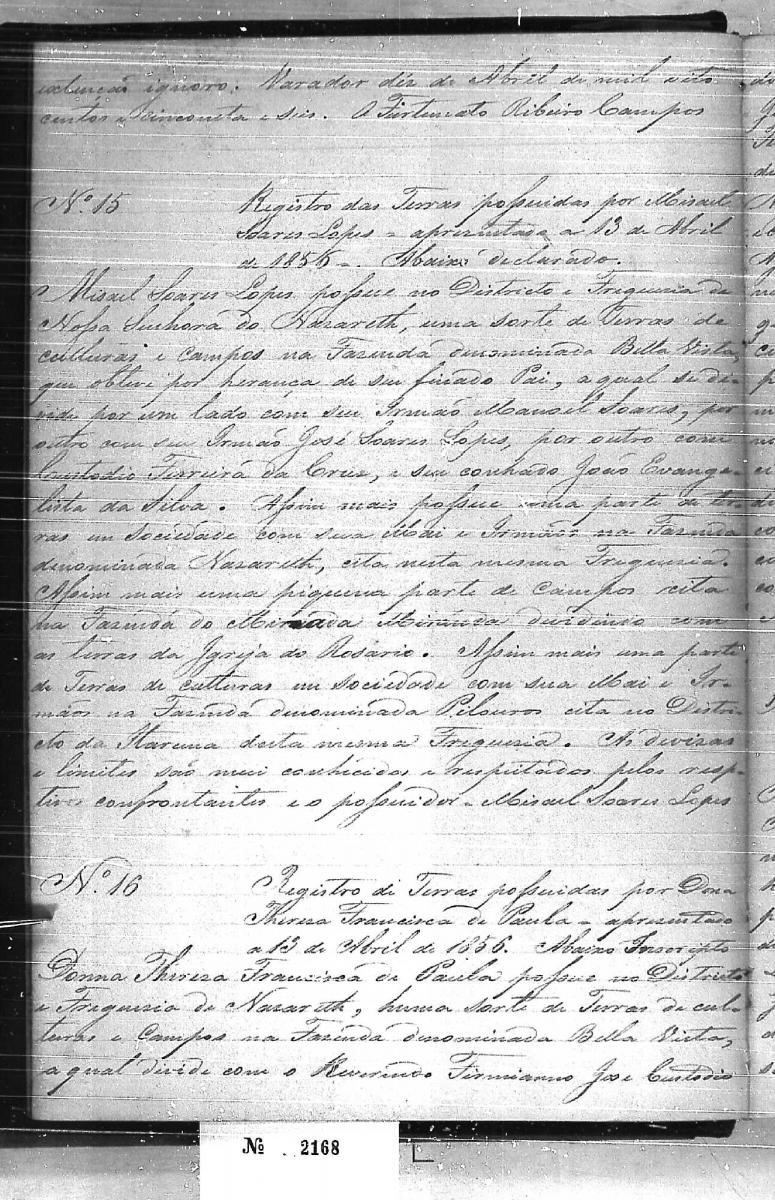 extenção ignoro. Narador dez de Abril de mil oito
centos e cincoenta e seis. A Furtunato Ribeiro Campos
Nº 15 Registro das Terras possuidas por Misael
Soares Lopes - apresentada a 13 de Abril
de 1856 -. Abaixo declarado.
Misael Soares Lopes possue no Districto e Freguezia de
Nossa Senhora do Nazareth, uma sorte de Terras de
culturas e campos na Fazenda denominada Bella Vista,
que obteve por herança de seu finado Pai, a qual se de-
vide por um lado com seu Irmão Manoel Soares, por
outro com seu Irmão José Soares Lopes, por outro com
Custodio Ferreira da Cruz, e seu cunhado João Evange-
lista da Silva. Assim mais possue uma parte de ter-
ras em Sociedade com sua Mai e Irmãos na Fazenda
denominada Nazareth, cita nesta mesma Freguezia.
Assim mais uma piquena parte de campos cita
na Fazenda do Miranda dividindo com
as terras da Igreja do Rosario. Assim mais uma parte
de Terras de culturas em Sociedade com sua Mai e Ir-
mãos na Fazenda denominada Pilouros cita no Distri-
cto da desta mesma Freguezia. As devizas
e limites são mui conhecidas e respeitados pelos resp-
tivos confrontantes e o possuidor - Misael Soares Lopes
Nº 16 Registro de Terras possuidas por Dona
Thereza Francisca de Paula - apresentado
a 13 de Abril de 1856. Abaixo Inscripto
Donna Thereza Francisca de Paula possue no Districto
e Freguezia de Nazareth, huma sorte de Terras de cul-
turas e Campos na Fazenda denominada Bella Vista,
a qual divide com o Reverendo Firmianno Jose Custodio
Nº 2168